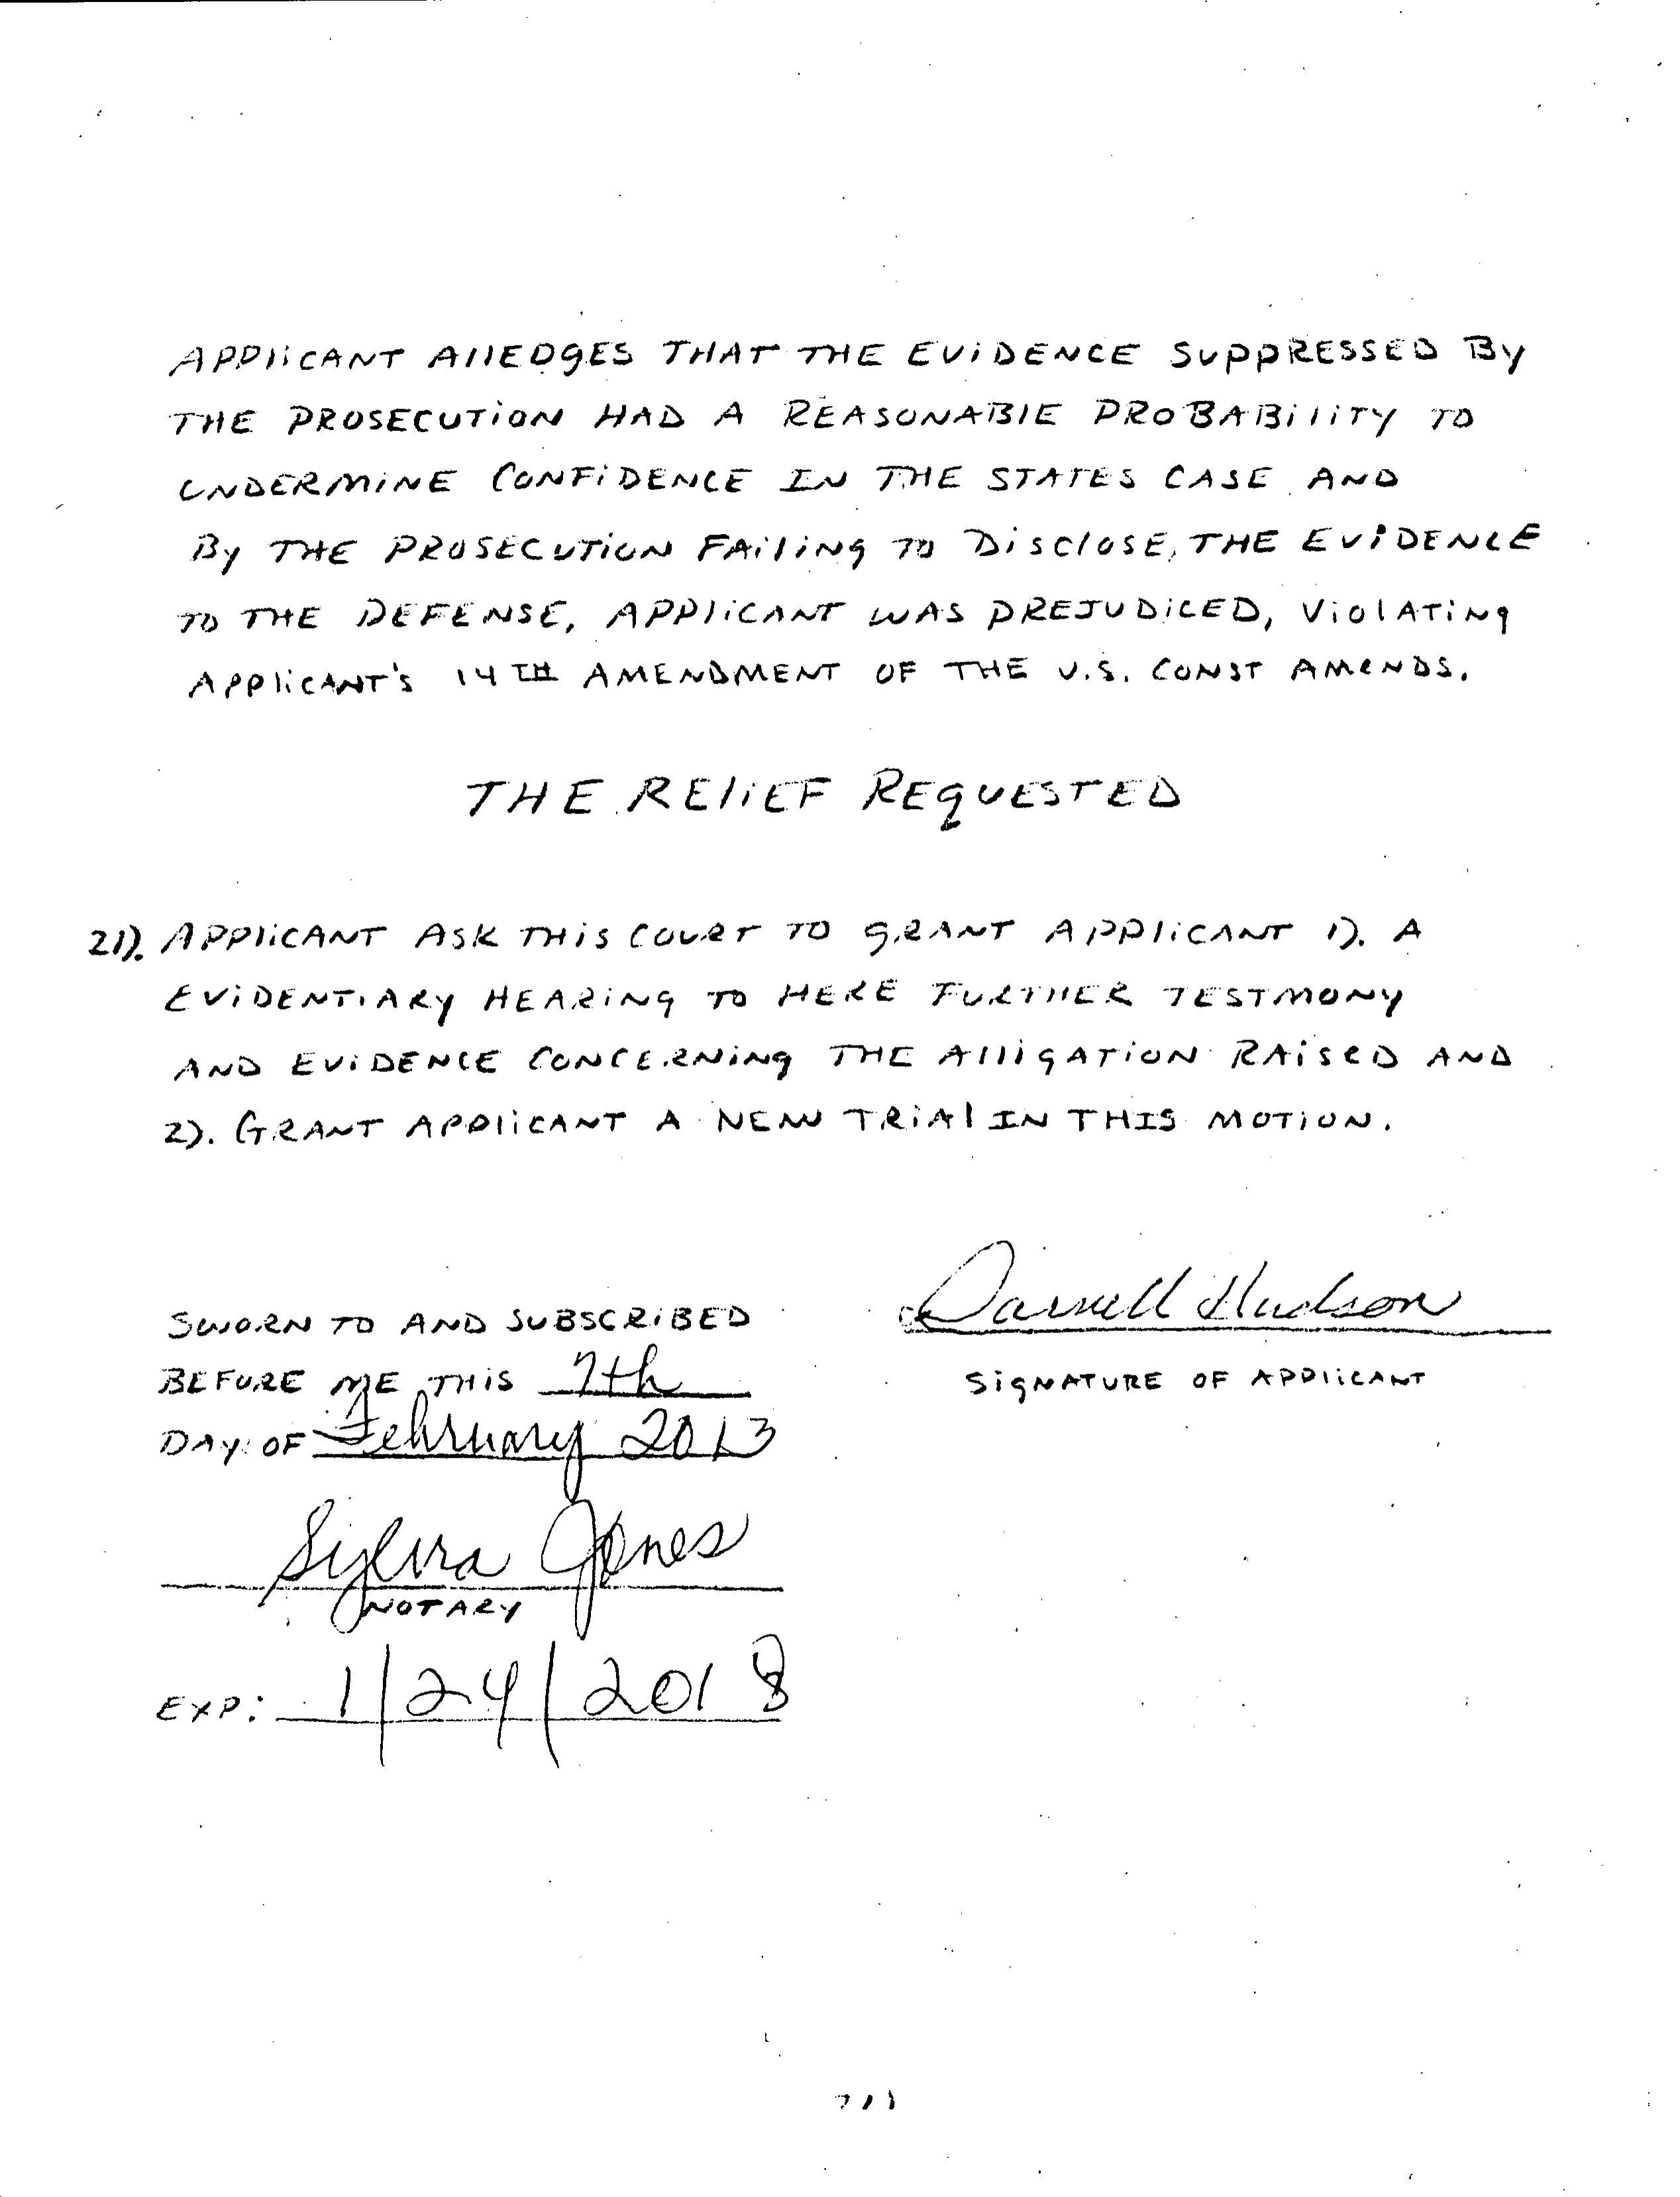 APPLICANT ALLEDGES THAT THE EVIDENCE SUPPRESSED BY
THE PROSECUTION HAD A REASONABLE PROBABILITY TO
UNDERMINE CONFIDENCE IN THE STATES CASE AND
BY THE PROSECUTION FAILING TO DISCLOSE, THE EVIDENCE
TO THE DEFENSE, APPLICANT WAS PREJUDICED, VIOLATING
APPLICANT'S 14TH AMENDMENT OF THE U.S. CONST AMENDS.
THE RELIEF REQUESTED
21). APPLICANT ASK THIS COURT TO GRANT APPLICANT 1). A
EVIDENTIARY HEARING TO HERE FURTHER TESTMONY
AND EVIDENCE CONCERNING THE ALLIGATION RAISED AND
2). GRANT APPLICANT A NEW TRIAL IN THIS MOTION.
Darrell Hudson
SIGNATURE OF APPLICANT
SWORN TO AND SUBSCRIBED
BEFORE ME THIS 7th
DAY OF February 2013
Sylvia Jones
NOTARY
EXP: 1/24/2018